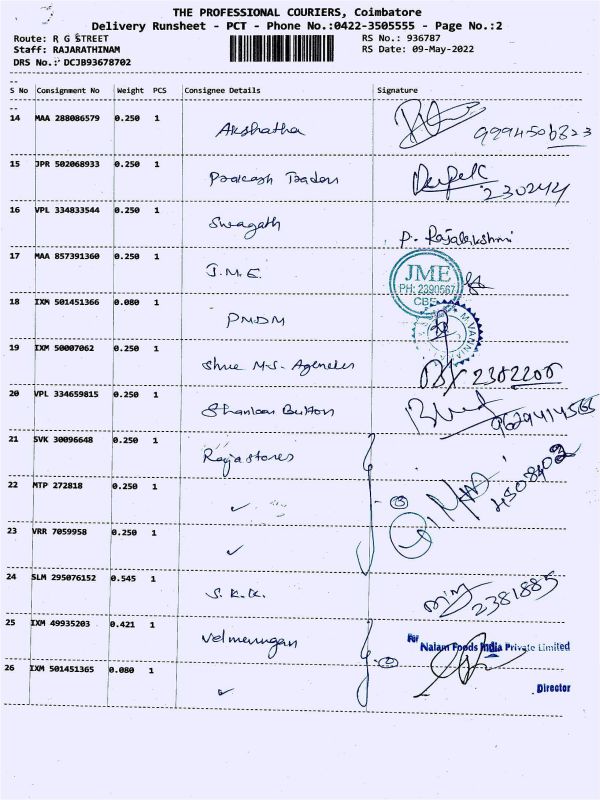 THE PROFESSIONAL COURIERS, Coimbatore
Delivery Runsheet - PCT - Phone No.:0422-3505555 - Page No.:2
Route: R G STREET
RS No.: 936787
Staff: RAJARATHINAM
RS Date: 09-May-2022
DRS No.: DCJB93678702
S No Consignment No Weight PCS Consignee Details Signature
14 MAA 288086579 0.250 1 Akshatha
15 JPR 502068933 0.250 1 Prakash Traders Deepak 230244
16 VPL 334833544 0.250 1 Swagath P. Rajalakshmi
17 MAA 857391360 0.250 1 J.M.E. JME PH: 2390567 CBE
18 IXM 501451366 0.080 1 PMDM
19 IXM 50007062 0.250 1 Shree M.S. Agencies 2382200
20 VPL 334659815 0.250 1 Shankar Button 9629414565
21 SVK 30096648 0.250 1 Raja stores
22 MTP 272818 0.250 1 ✓ 3
23 VRR 7059958 0.250 1 ✓
24 SLM 295076152 0.545 1 S.K.K. 2381885
25 IXM 49935203 0.421 1 Velmurugan For Nalam Foods India Private Limited
26 IXM 501451365 0.080 1 ✓ 2 Director